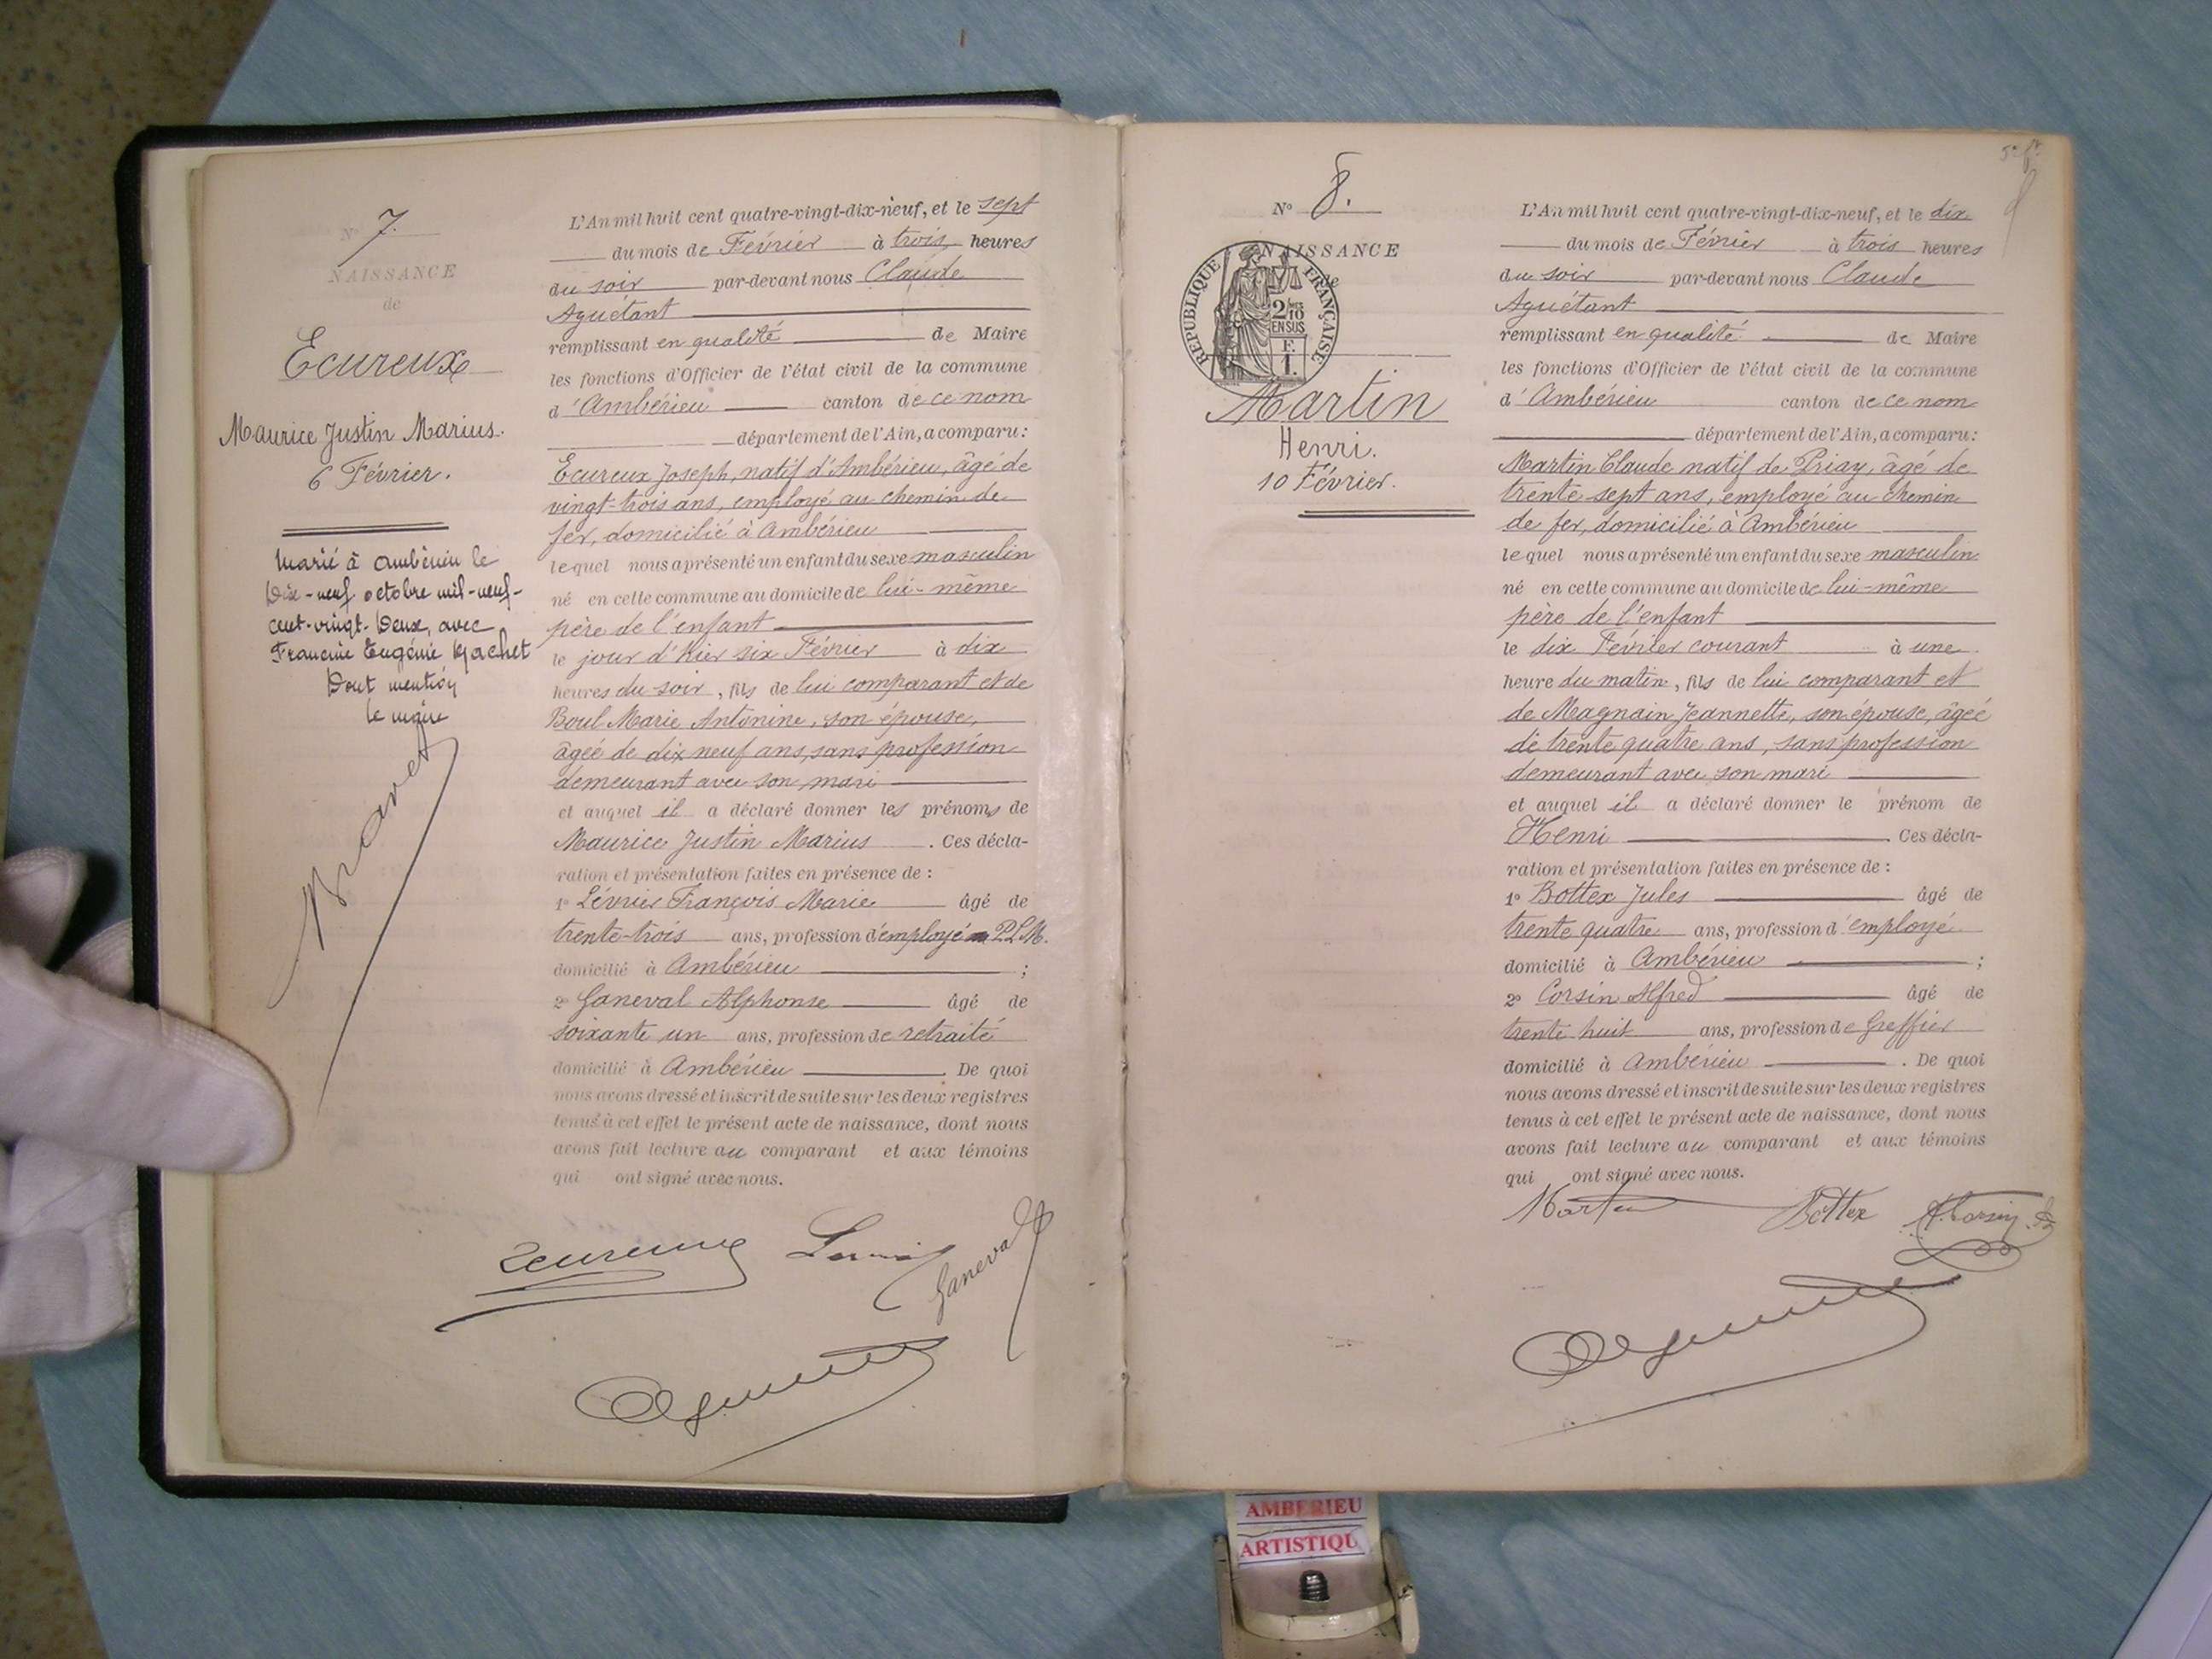 Nº 7.
NAISSANCE
de
Ecureux
Maurice Justin Marius.
6 Février.
Marié à Ambérieu le
Dix-neuf octobre mil-neuf-
cent-vingt-Deux, avec
Francine Eugénie
Dont mention
le maire
L'An mil huit cent quatre-vingt-dix-neuf, et le sept
du mois de Février à trois heures
du soir par-devant nous Claude
Aguétant
remplissant en qualité de Maire
les fonctions d'Officier de l'état civil de la commune
d'Ambérieu canton de ce nom
département de l'Ain, a comparu:
Ecureux Joseph, natif d'Ambérieu, âgé de
vingt-trois ans, employé au chemin de
fer, domicilié à Ambérieu
lequel nous a présenté un enfant du sexe masculin
né en cette commune au domicile de lui-même
père de l'enfant
le jour d'hier six Février à dix
heures du soir, fils de lui comparant et de
Boul Marie Antonine, son épouse,
âgée de dix neuf ans, sans profession
demeurant avec son mari
et auquel il a déclaré donner les prénoms de
Maurice Justin Marius . Ces décla-
ration et présentation faites en présence de :
1º Lévrier François Marie âgé de
trente-trois ans, profession d'employé P.L.M.
domicilié à Ambérieu ;
2º Ganeval Alphonse âgé de
soixante un ans, profession de retraité
domicilié à Ambérieu . De quoi
nous avons dressé et inscrit de suite sur les deux registres
tenus à cet effet le présent acte de naissance, dont nous
avons fait lecture au comparant et aux témoins
qui ont signé avec nous.
Ecureux
Ganeval
Nº 8.
NAISSANCE
de
RÉPUBLIQUE FRANÇAISE
2/10
EN SUS
F.
1.
Martin
Henri.
10 Février.
L'An mil huit cent quatre-vingt-dix-neuf, et le dix
du mois de Février à trois heures
du soir par-devant nous Claude
Aguétant
remplissant en qualité de Maire
les fonctions d'Officier de l'état civil de la commune
d'Ambérieu canton de ce nom
département de l'Ain, a comparu:
Martin Claude natif de Priay, âgé de
trente-sept ans, employé au chemin
de fer, domicilié à Ambérieu
lequel nous a présenté un enfant du sexe masculin
né en cette commune au domicile de lui-même
père de l'enfant
le dix Février courant à une
heure du matin, fils de lui comparant et
de Magnain Jeannette, son épouse, âgée
de trente quatre ans, sans profession
demeurant avec son mari
et auquel il a déclaré donner le prénom de
Henri . Ces décla-
ration et présentation faites en présence de :
1º Bottex Jules âgé de
trente quatre ans, profession d'employé
domicilié à Ambérieu ;
2º Corsin Alfred âgé de
trente huit ans, profession de Greffier
domicilié à Ambérieu . De quoi
nous avons dressé et inscrit de suite sur les deux registres
tenus à cet effet le présent acte de naissance, dont nous
avons fait lecture au comparant et aux témoins
qui ont signé avec nous.
Martin Bottex A. Corsin
AMBERIEU
ARTISTIQU